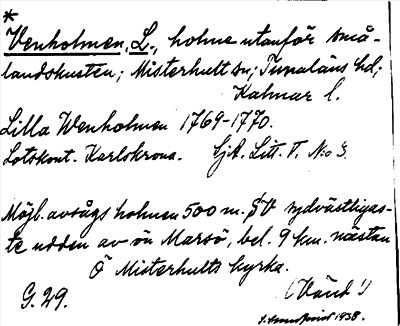 *
Venholmen, L., holme utanför små-
landskusten; Misterhult sn; Tunaläns hd;
Kalmar l.
Lilla Wenholmen 1769-1770.
Lotskont. Karlskrona. SjA. Litt. T. N:o 3.
Möjl. avsågs holmen 500 m. SV sydvästligas-
te udden av ön Marsö, bel. 9 km. nästan
Ö Misterhults kyrka.
G. 29. (Vänd!)
1938.